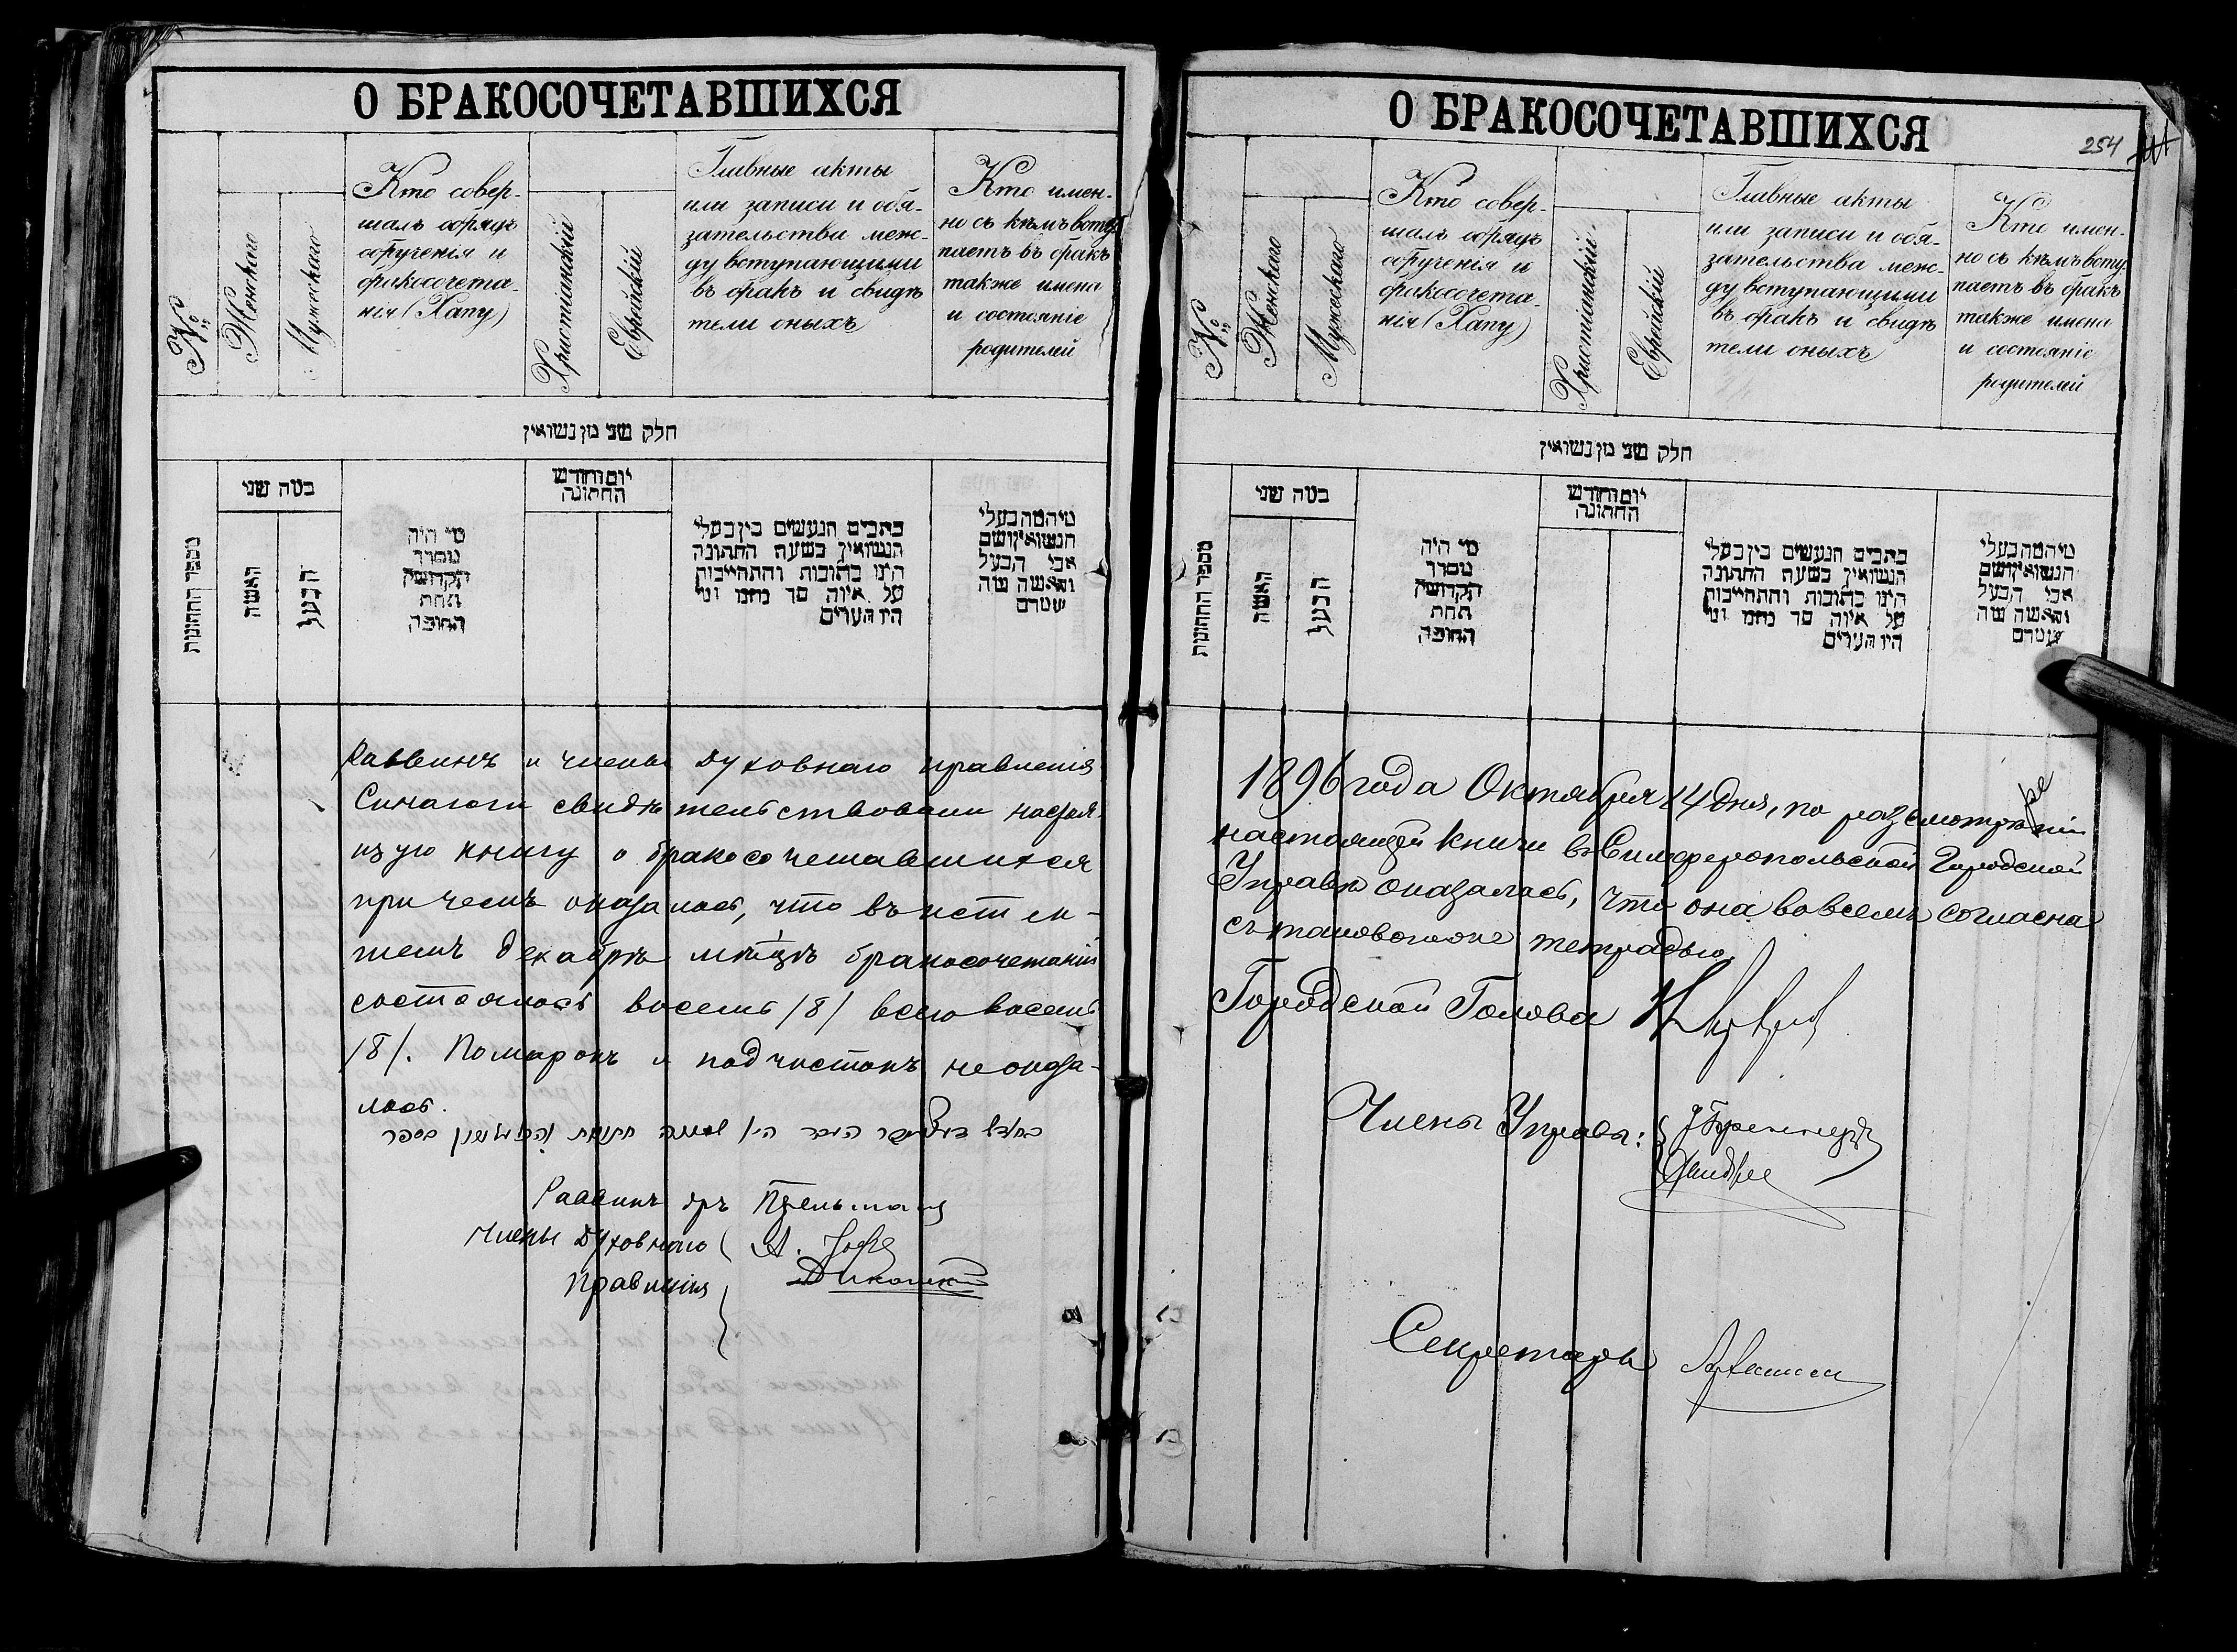 О БРАКОСОЧЕТАВШИХСЯ
№
Женскаго
Мужескаго
Кто совер-
шалъ обрядъ
обрученія и
бракосочета-
нія (Хапу)
Христіанскій
Еврейскій
Главные акты
или записи и обя-
зательства меж-
ду вступающими
въ бракъ и свидѣ
тели оныхъ
Кто имен-
но съ кѣмъ всту
паетъ въ бракъ
также имена
и состояніе
родителей
חלק שני מן נשואין
מספר החתונות
כמה שני
האשה
הבעל
מי היה
מסדר
הקדושין
תחת
החופה
יום וחודש
החתונה
כתבים הנעשים בין בעלי
הנשואין בשעת החתונה
היינו כתובות והתחייבות
על איזה סך
היו העדים
הנשואין ושם
אבי הבעל
Раввинъ и члены духовнаго правленія
Синагоги свидѣтельствовали настоя-
щую книгу о бракосочетавшихся
при чемъ оказалось, что въ истек-
шемъ Декабрѣ мѣсяцѣ бракосочетаній
состоялось восемь /8/ всего восемь
/8/. Помарокъ и подчистокъ не оказа-
лось.
Раввинъ
Члены Духовнаго
Правленія
О БРАКОСОЧЕТАВШИХСЯ
254
№
Женскаго
Мужескаго
Кто совер-
шалъ обрядъ
обрученія и
бракосочета-
нія (Хапу)
Христіанскій
Еврейскій
Главные акты
или записи и обя-
зательства меж-
ду вступающими
въ бракъ и свидѣ
тели оныхъ
Кто имен-
но съ кѣмъ всту
паетъ въ бракъ
также имена
и состояніе
родителей
חלק שני מן נשואין
מספר החתונות
כמה שני
האשה
הבעל
מי היה
מסדר
הקדושין
תחת
החופה
יום וחודש
החתונה
כתבים הנעשים בין בעלי
הנשואין בשעת החתונה
היינו כתובות והתחייבות
על איזה סך
היו העדים
הנשואין ושם
אבי הבעל
1896 года Октября 14 дня, по разсмотрѣніи
настоящей книги въ Симферопольской Городской
Управѣ оказалось, что она во всемъ согласна
съ таковою же тетрадью.
Городской Голова
Члены Управы:
Секретарь